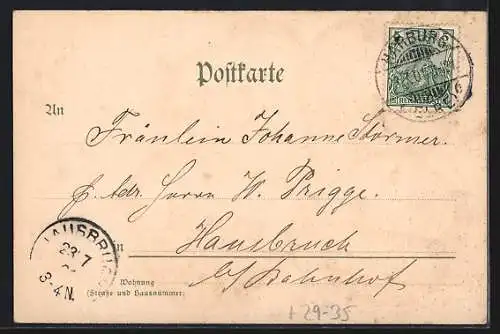 HARBURG
Postkarte
An
Fräulein Johanne Störmer.
p. Adr. Herrn W. Prigge.
in Hausbruch
b/Bahnhof
HAUSBRUCH
23 7
3-4 N.
Wohnung
(Straße und Hausnummer)
+29-35